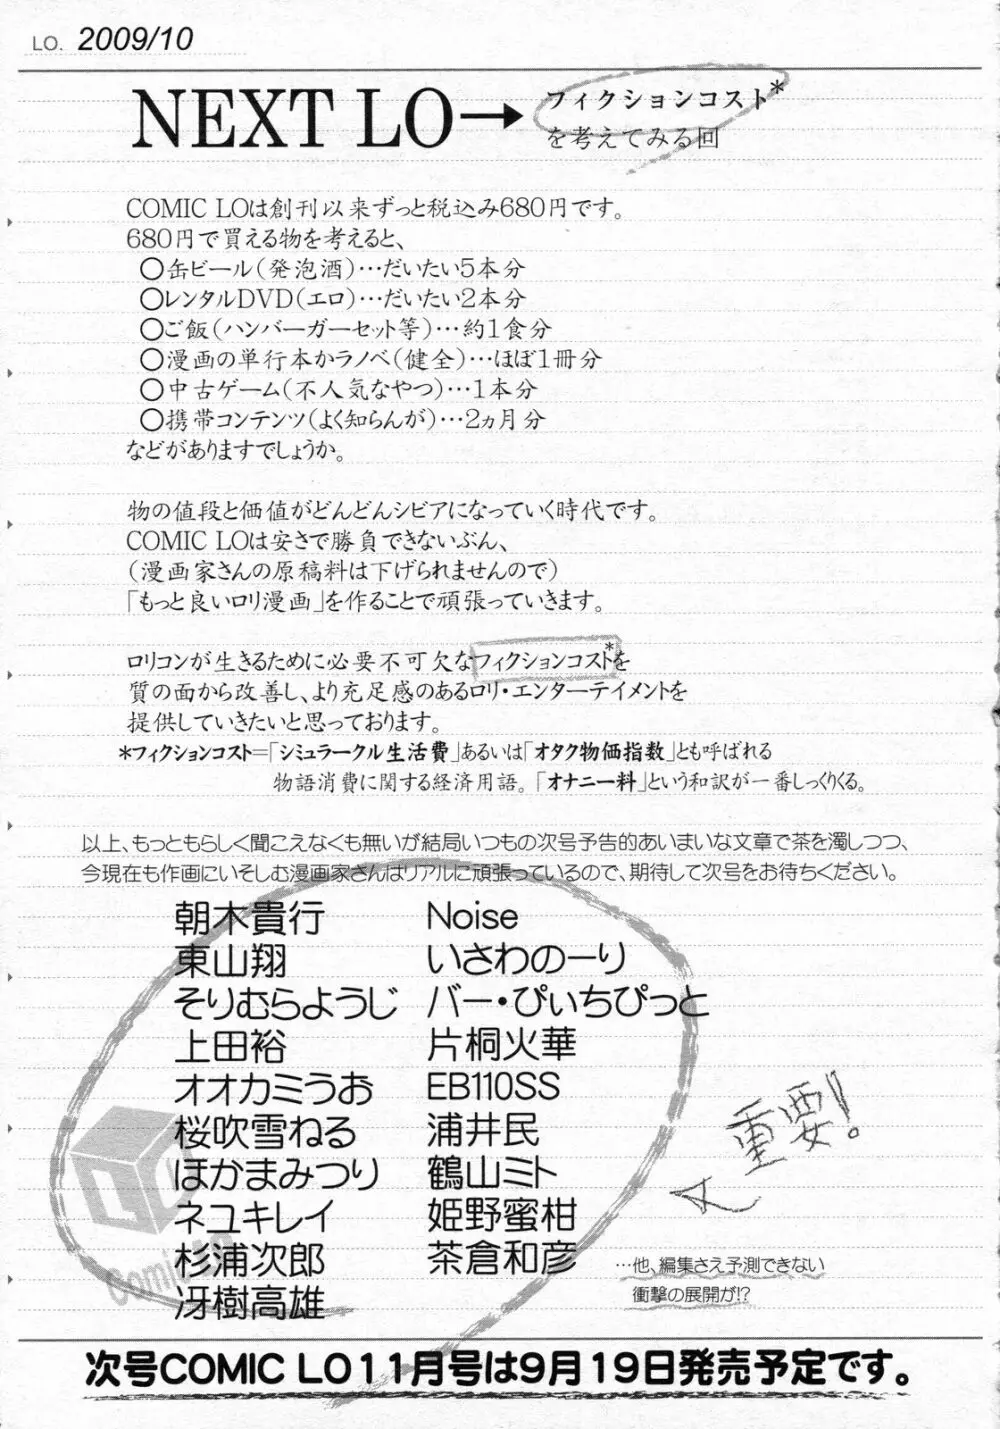 LO. 2009/10
NEXT LO→
フィクションコスト*
を考えてみる回
COMIC LOは創刊以来ずっと税込み680円です。
680円で買える物を考えると、
○缶ビール(発泡酒)…だいたい5本分
○レンタルDVD(エロ)…だいたい2本分
○ご飯(ハンバーガーセット等)…約1食分
○漫画の単行本かラノベ(健全)…ほぼ1冊分
○中古ゲーム(不人気なやつ)…1本分
○携帯コンテンツ(よく知らんが)…2ヵ月分
などがありますでしょうか。
物の値段と価値がどんどんシビアになっていく時代です。
COMIC LOは安さで勝負できないぶん、
(漫画家さんの原稿料は下げられませんので)
「もっと良いロリ漫画」を作ることで頑張っていきます。
ロリコンが生きるために必要不可欠なフィクションコスト*を
質の面から改善し、より充足感のあるロリ・エンターテイメントを
提供していきたいと思っております。
*フィクションコスト=「シミュラークル生活費」あるいは「オタク物価指数」とも呼ばれる
物語消費に関する経済用語。「オナニー料」という和訳が一番しっくりくる。
以上、もっともらしく聞こえなくも無いが結局いつもの次号予告的あいまいな文章で茶を濁しつつ、
今現在も作画にいそしむ漫画家さんはリアルに頑張っているので、期待して次号をお待ちください。
朝木貴行
東山翔
そりむらようじ
上田裕
オオカミうお
桜吹雪ねる
ほかまみつり
ネユキレイ
杉浦次郎
冴樹高雄
Noise
いさわのーり
バー・ぴぃちぴっと
片桐火華
EB110SS
浦井民
鶴山ミト
姫野蜜柑
茶倉和彦
重要!
…他、編集さえ予測できない
衝撃の展開が!?
LO
Comic LO
次号COMIC LO11月号は9月19日発売予定です。